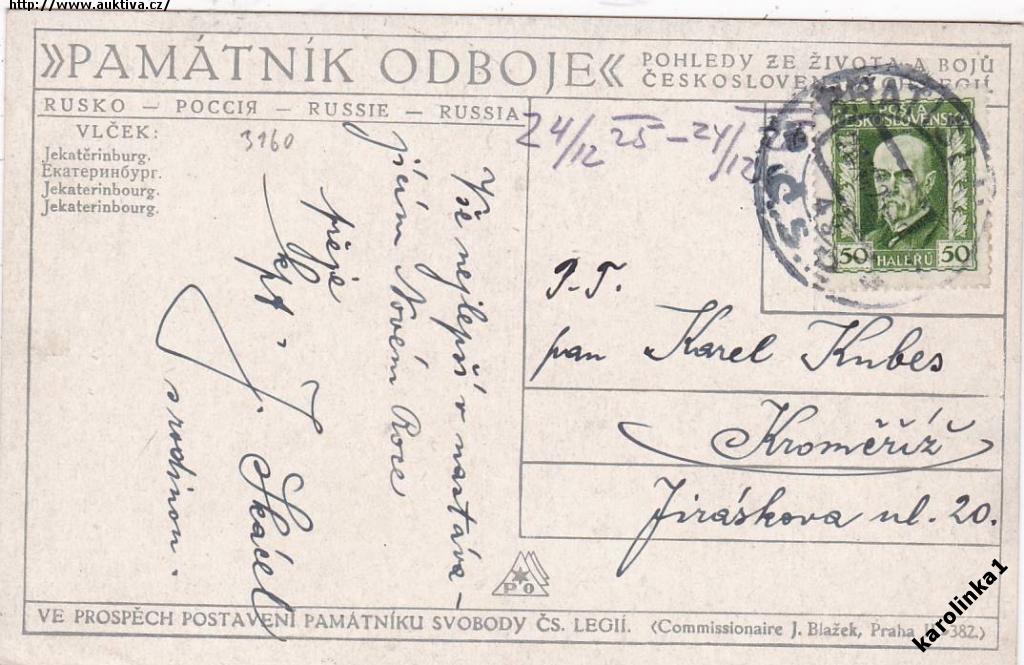 http://www.auktiva.cz/
»PAMÁTNÍK ODBOJE«
POHLEDY ZE ŽIVOTA A BOJŮ
ČESKOSLOVENSKÝCH LEGIÍ
RUSKO — РОССІЯ — RUSSIE — RUSSIA
VLČEK:
Jekatěrinburg.
Екатеринбург.
Jekaterinbourg.
Jekaterinbourg.
3160
24/12 25 – 24/12 25
POŠTA
ČESKOSLOVENSKÁ
50 HALÉŘŮ 50
Vše nejlepší v nastáva-
jícím Novém Roce
přeje
kpt. J. Skácel
s rodinou.
P.T.
pan Karel Kubes
Kroměříž
Jiráskova ul. 20.
PO
VE PROSPĚCH POSTAVENÍ PAMÁTNÍKU SVOBODY ČS. LEGIÍ. (Commissionaire J. Blažek, Praha 382.)
karolinka1